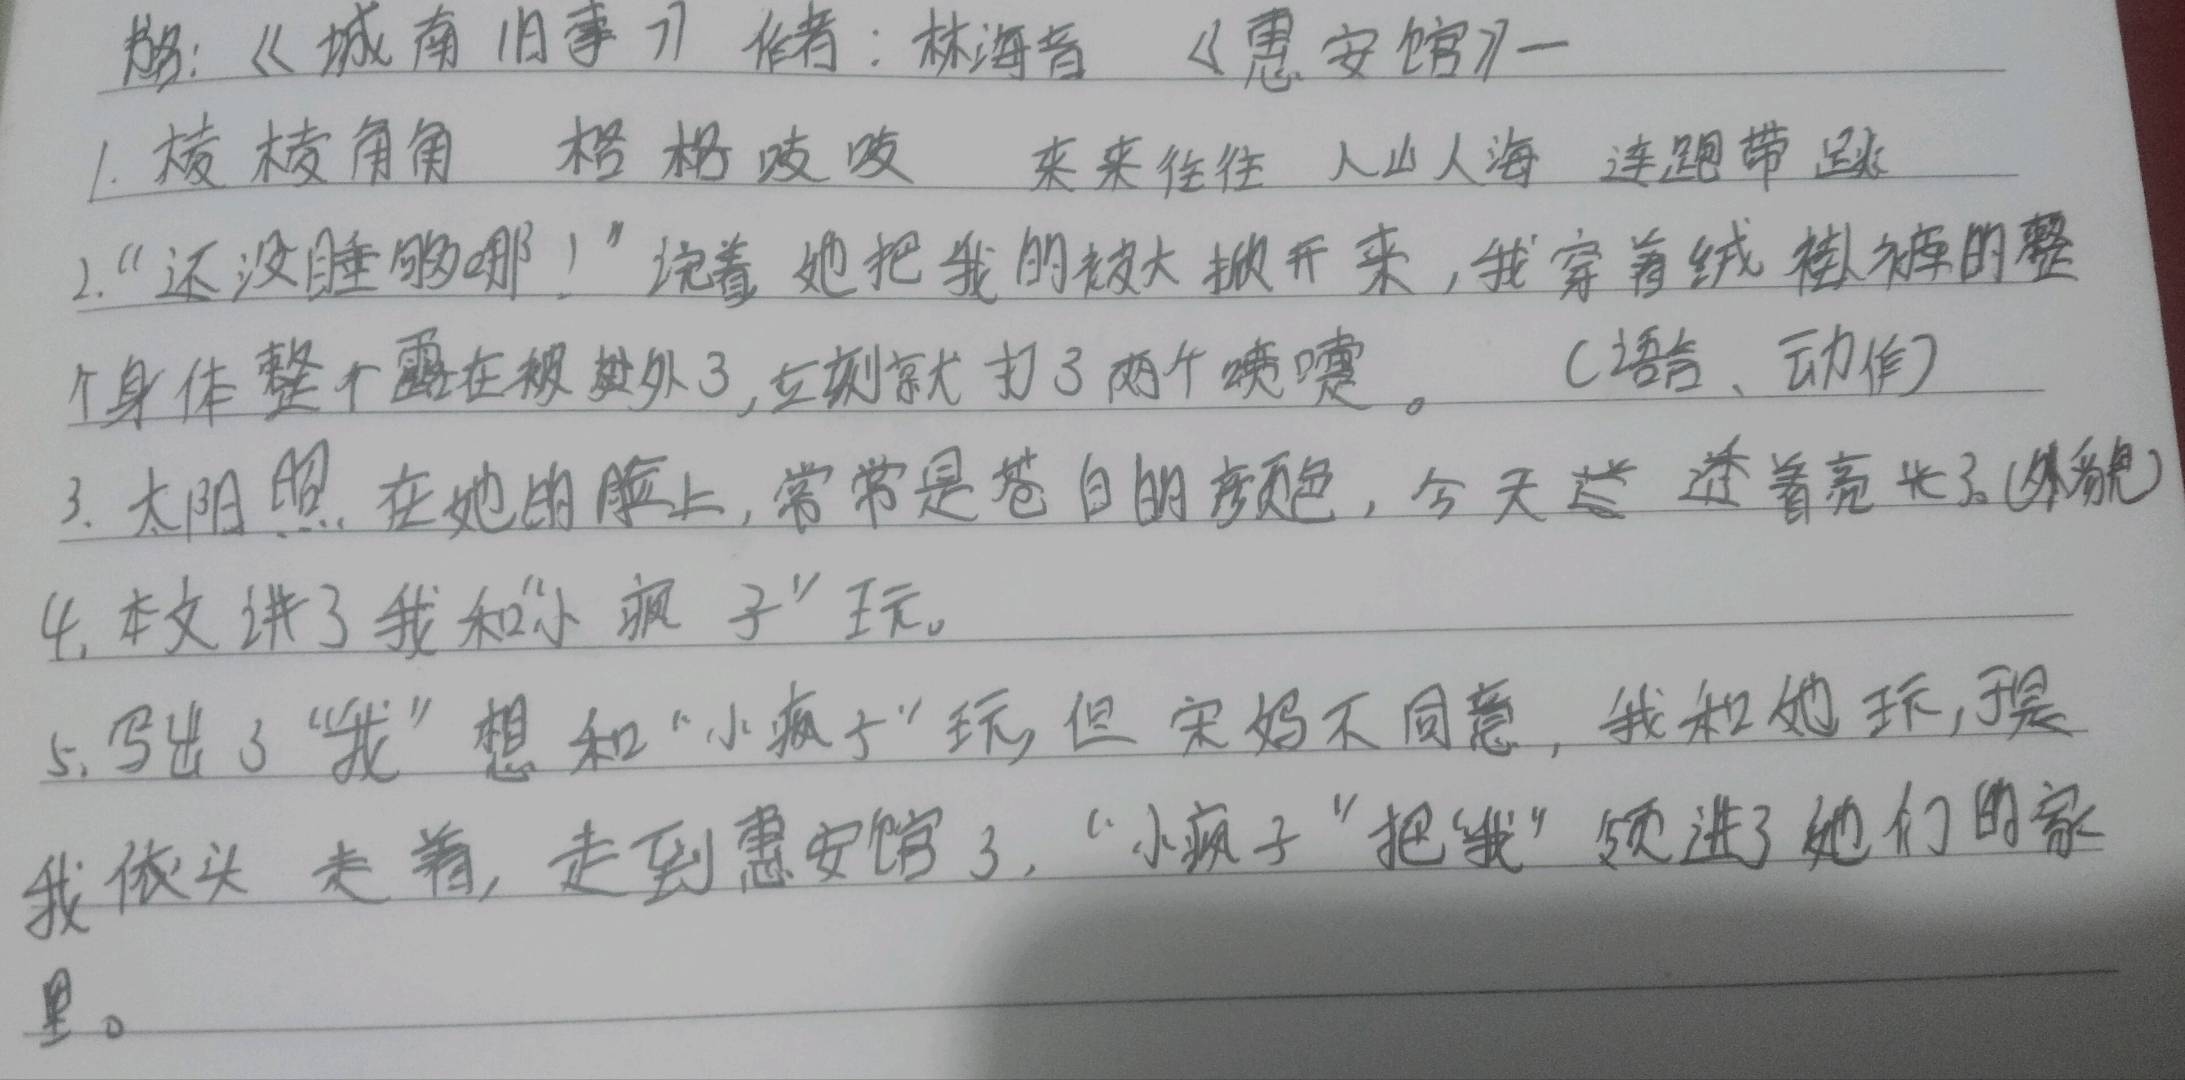 书名:《城南旧事》 作者:林海音 《惠安馆》一
1. 棱棱角角 格格吱吱 来来往往 人山人海 连跑带跳
2.“还没睡够哪!”说着她把我的被大掀开来,我穿着绒褂裤的整
个身体整个露在被外了,立刻就打了两个喷嚏。 (语言、动作)
3. 太阳照在她的脸上,常常是苍白的颜色,今天 透着亮光了。(外貌)
4. 本文讲了我和“小疯子”玩。
5. 写出了“我”想和“小疯子”玩,但宋妈不同意,我和她玩,于是
我依头走着,走到惠安馆了,“小疯子”把“我”领进了她们的家
里。